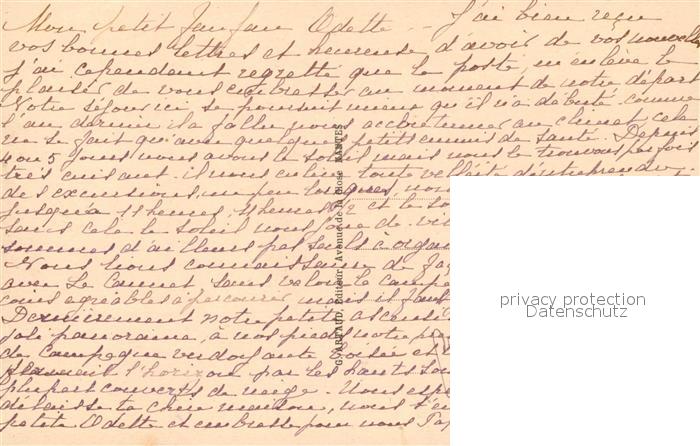 Mon petit Fanfan Odette – J'ai bien reçu
vos bonnes lettres et heureuse d'avoir de vos nouvelles
J'ai cependant regretté que la poste m'enlève le
plaisir de vous embrasser au moment de notre départ
Notre séjour ici se poursuit même qu'il n'a débuté comme
l'an dernier il a fallu nous acclimater au climat cela
ne se fait qu'avec quelques petits ennuis de santé. Depuis
4 ou 5 jours nous avons le soleil mais nous le trouvons parfois
très cuisant. il nous enlève toute velléité d'entreprendre
des excursions un peu longues, nous
jusqu'à 11 heures, 4 heures 1/2 et le so
sans cela le soleil nous joue de vil
sommes d'ailleurs pas seuls à
Nous lions connaissance de
avec Le Cannet sans la campa
coins agréables à parcourir mais il faut
Dernièrement notre petite ascensi
joli panorama, à nos pieds notre
de campagne verdoyante boisée et
l'horizon par les hauts som
plupart couverts de neige. Nous esp
ta chère maman, nous t'
petite Odette et embrasse pour nous
G. ARTAUD, Editeur, Avenue de la Close NANTES
privacy protection
Datenschutz